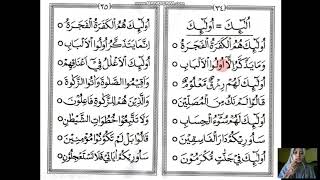 (٢٤)
اُولٰٓئِكَ = اُولٰٓئِكَ
اُولٰٓئِكَ هُمُ الْكَفَرَةُ الْفَجَرَةُ
وَمَا يَذَّكَّرُ اِلَّآ اُولُوا الْاَلْبَابِ
اُولٰٓئِكَ لَهُمْ رِزْقٌ مَّعْلُوْمٌ
قَالُوْا لَمْ نَكُ مِنَ الْمُصَلِّيْنَ
اُولٰٓئِكَ لَهُمْ سُوْٓءُ الْحِسَابِ
سَاُورِيْكُمْ دَارَ الْفَاسِقِيْنَ
اُولٰٓئِكَ فِيْ جَنّٰتٍ مُّكْرَمُوْنَ
(٢٥)
اُولٰٓئِكَ هُمُ الْكَفَرَةُ الْفَجَرَةُ
اِنَّمَا يَتَذَكَّرُ اُولُوا الْاَلْبَابِ
اُولٰٓئِكَ الْاَغْلٰلُ فِيْٓ اَعْنَاقِهِمْ
وَاَقِيْمُوا الصَّلٰوةَ وَاٰتُوا الزَّكٰوةَ
وَالَّذِيْنَ هُمْ لِلزَّكٰوةِ فَاعِلُوْنَ
وَلَا تَتَّبِعُوْا خُطُوٰتِ الشَّيْطٰنِ
قَالُوْا بَلْ لَّمْ تَكُوْنُوْا مُؤْمِنِيْنَ
سَاُورِيْكُمْ اٰيٰتِيْ فَلَا تَسْتَعْجِلُوْنِ